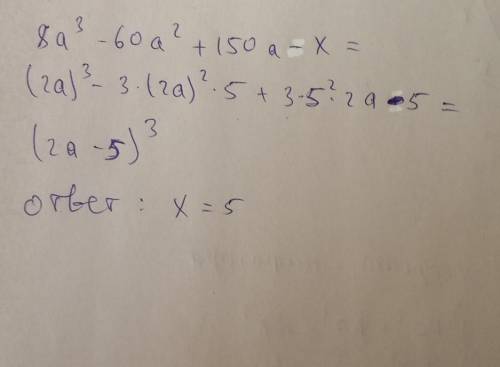 8a³ - 60a² + 150a - x =
(2a)³ - 3 · (2a)² · 5 + 3 · 5² · 2a - 5 =
(2a - 5)³
ответ : x = 5